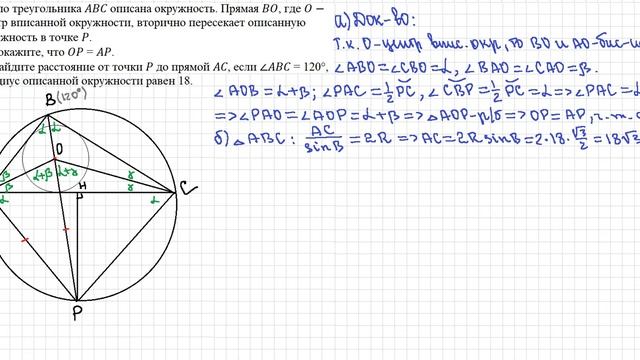 ло треугольника ABC описана окружность. Прямая BO, где O −
тр вписанной окружности, вторично пересекает описанную
жность в точке P.
окажите, что OP = AP.
айдите расстояние от точки P до прямой AC, если ∠ABC = 120°,
диус описанной окружности равен 18.
а) Док-во:
Т.к. O-центр впис. окр, то BO и AO-бис-
∠ABO=∠CBO=α, ∠BAO=∠CAO=β.
∠AOB=α+β; ∠PAC=½PC, ∠CBP=½PC=α=>∠PAC=α
=>∠PAO=∠AOP=α+β=>△AOP-р/б=>OP=AP, ч.т.
б) △ABC: AC/sinB=2R=>AC=2RsinB=2·18·√3/2=18√3
B(120°)
α α
O
β
β
α+β α+γ
γ
γ
α
H
α
C
P